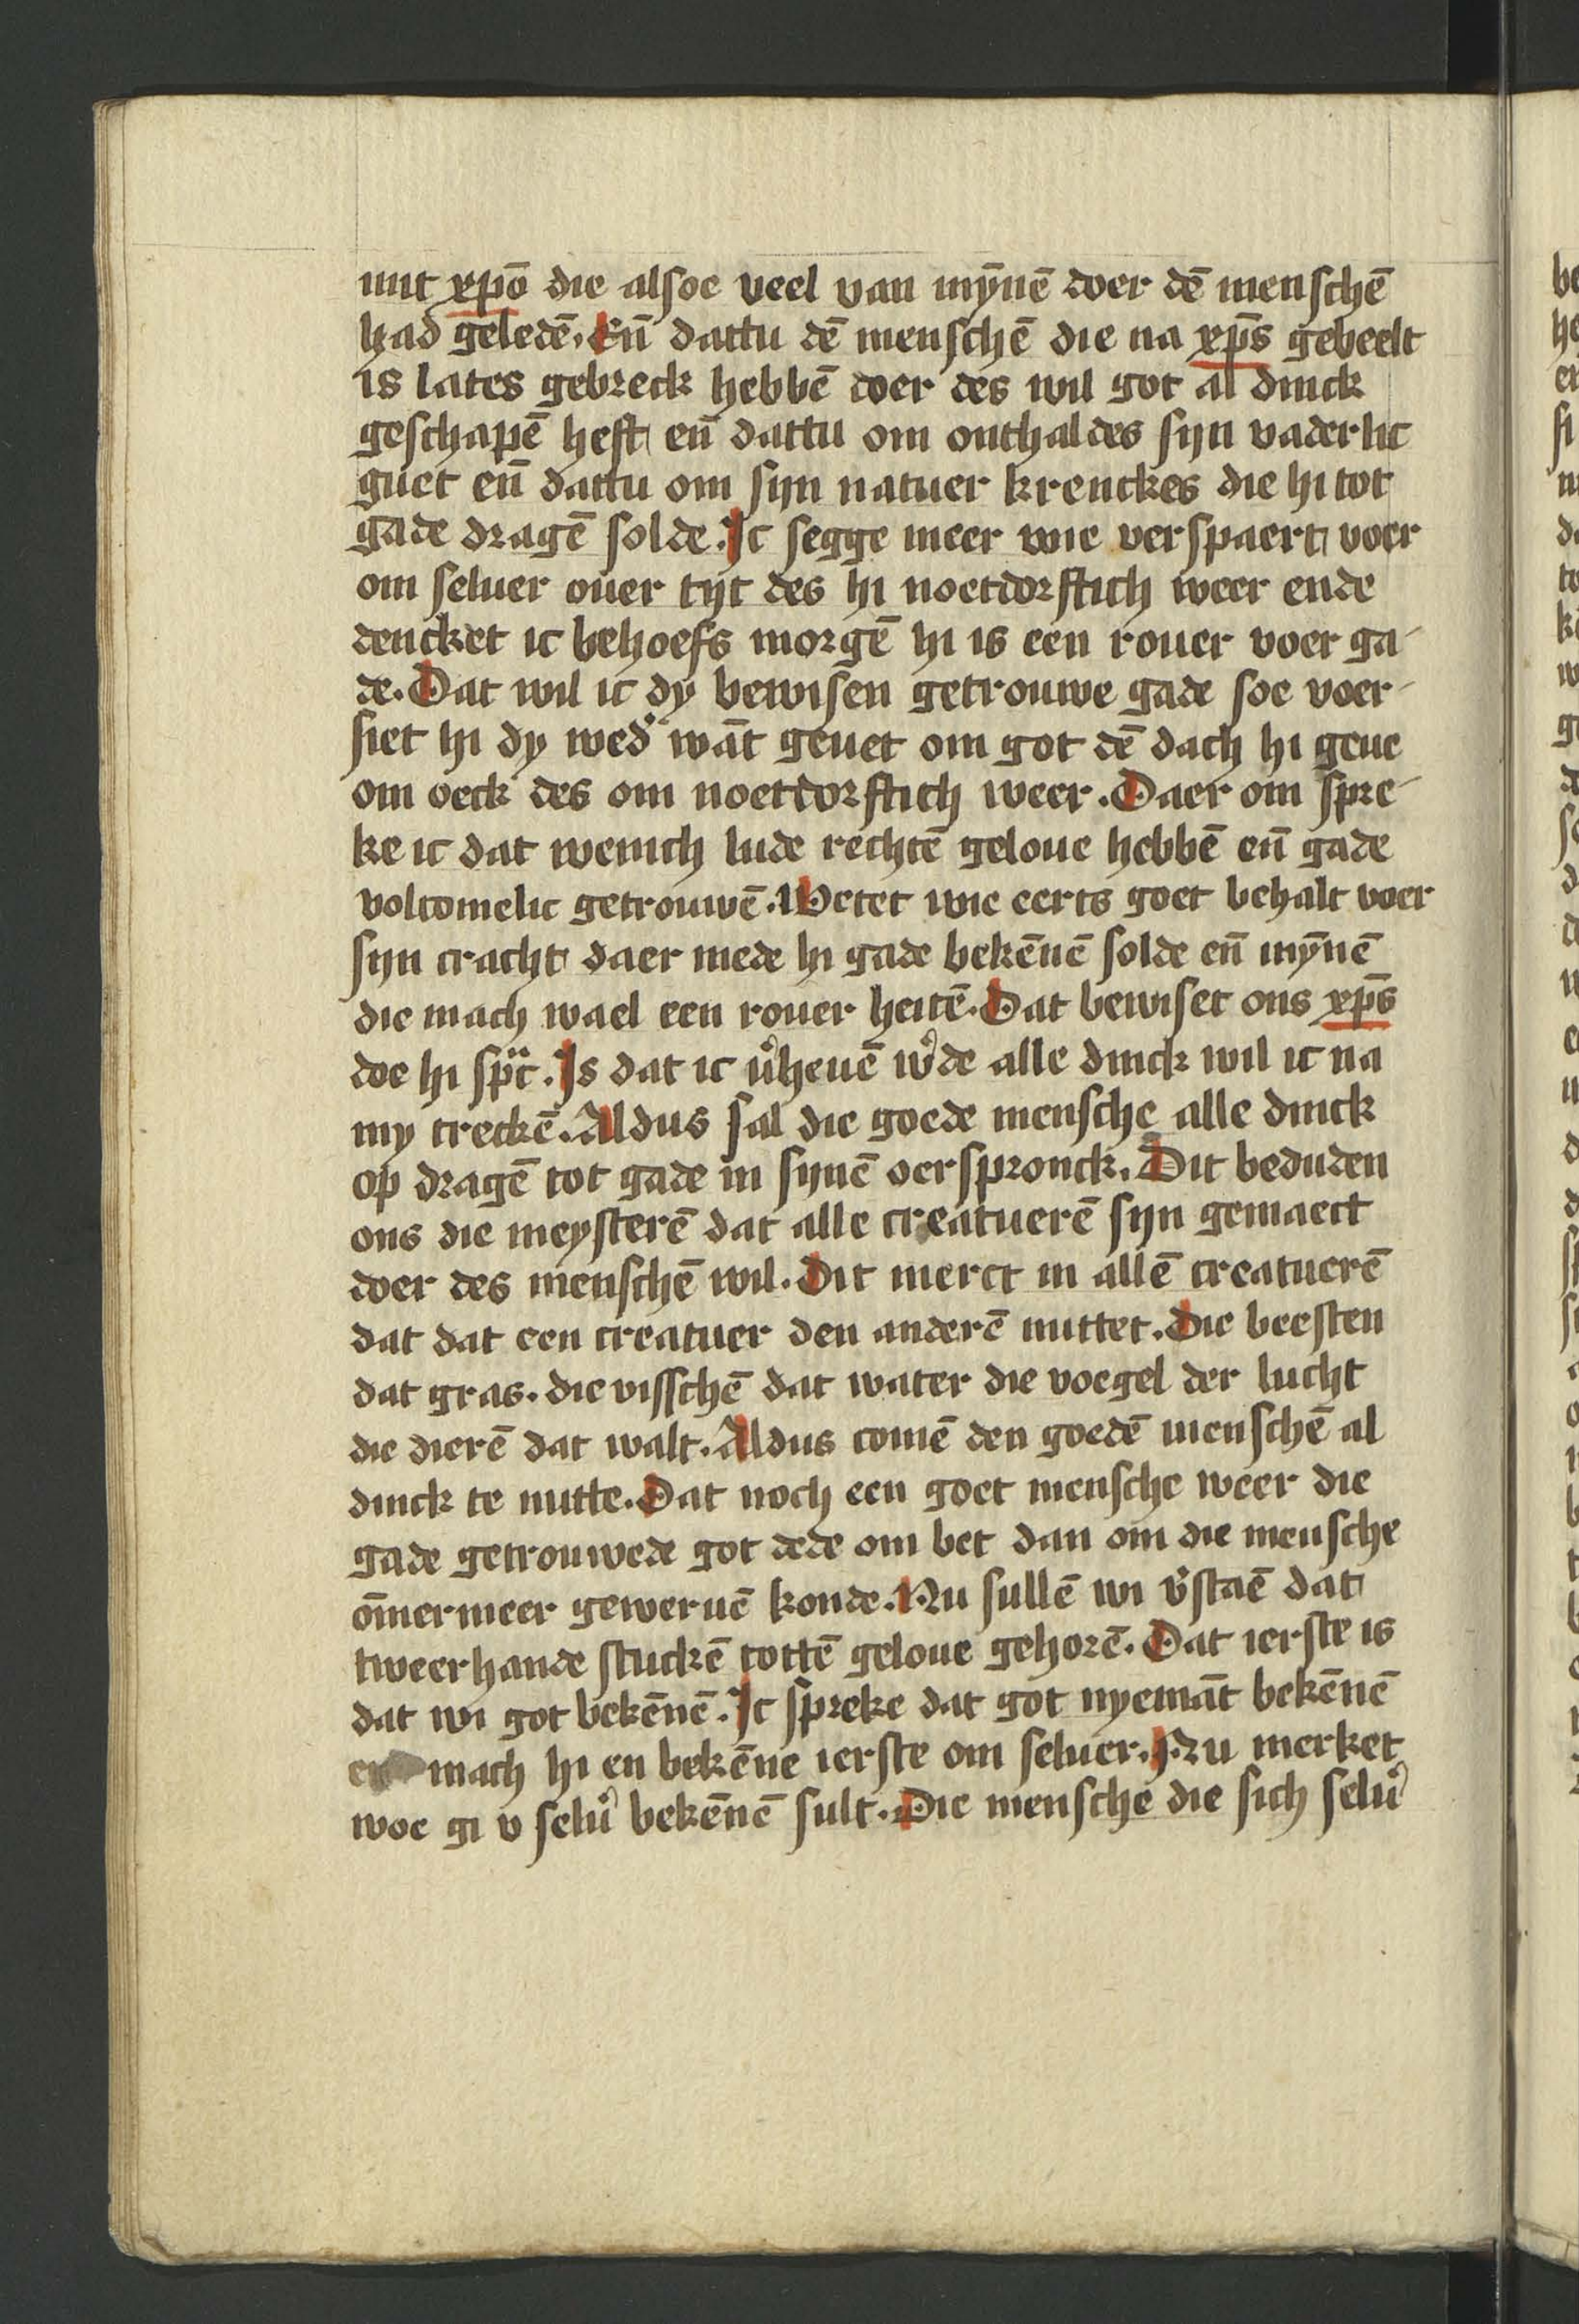 mit xp̄o die alsoe veel van mȳnē doer dē menschē
had geledē. Eñ dattu dē menschē die na xp̄s gebeelt
is lates gebreck hebbē doer des wil got al dinck
geschapē heft eñ dattu om onthaldes sijn vaderlic
guet eñ dattu om sijn natuer krenckes die hi tot
gade dragē solde. Ic segge meer wie verspaert voer
om seluer ouer tijt des hi noetdorftich weer ende
dencket ic behoefs morgē hi is een rouer voer ga-
de. Dat wil ic dy bewisen getrouwe gade soe voer-
siet hi dy wedʾ wāt geuet om got dē dach hi geue
om oeck des om noetdorftich weer. Daer om spre-
ke ic dat wenich lude rechtē geloue hebbē eñ gade
volcomelic getrouwē. Wetet wie eerts goet behalt voer
sijn cracht daer mede hi gade bekēnē solde eñ mȳnē
die mach wael een rouer heitē. Dat bewiset ons xp̄s
doe hi sp̄c. Is dat ic vʾheuē wʾde alle dinck wil ic na
my treckē. Aldus sal die goede mensche alle dinck
op dragē tot gade in synē oerspronck. Dit beduden
ons die meysterē dat alle creatuerē sijn gemaect
doer des menschē wil. Dit merct in allē creatuerē
dat dat een creatuer den anderē nuttet. Die beesten
dat gras. die visschē dat water die voegel der lucht
die dierē dat walt. Aldus comē den goedē menschē al
dinck te nutte. Dat noch een goet mensche weer die
gade getrouwede got dede om bet dan om die mensche
ōmermeer geweruē konde. Nu sullē wi vʾstaē dat
tweerhande stuckē tottē geloue gehorē. Dat ierste is
dat wi got bekēnē. Ic spreke dat got nyemāt bekēnē
en mach hi en bekēne ierste om seluer. Nu merket
woe gi v seluʾ bekēnē sult. Die mensche die sich seluʾ